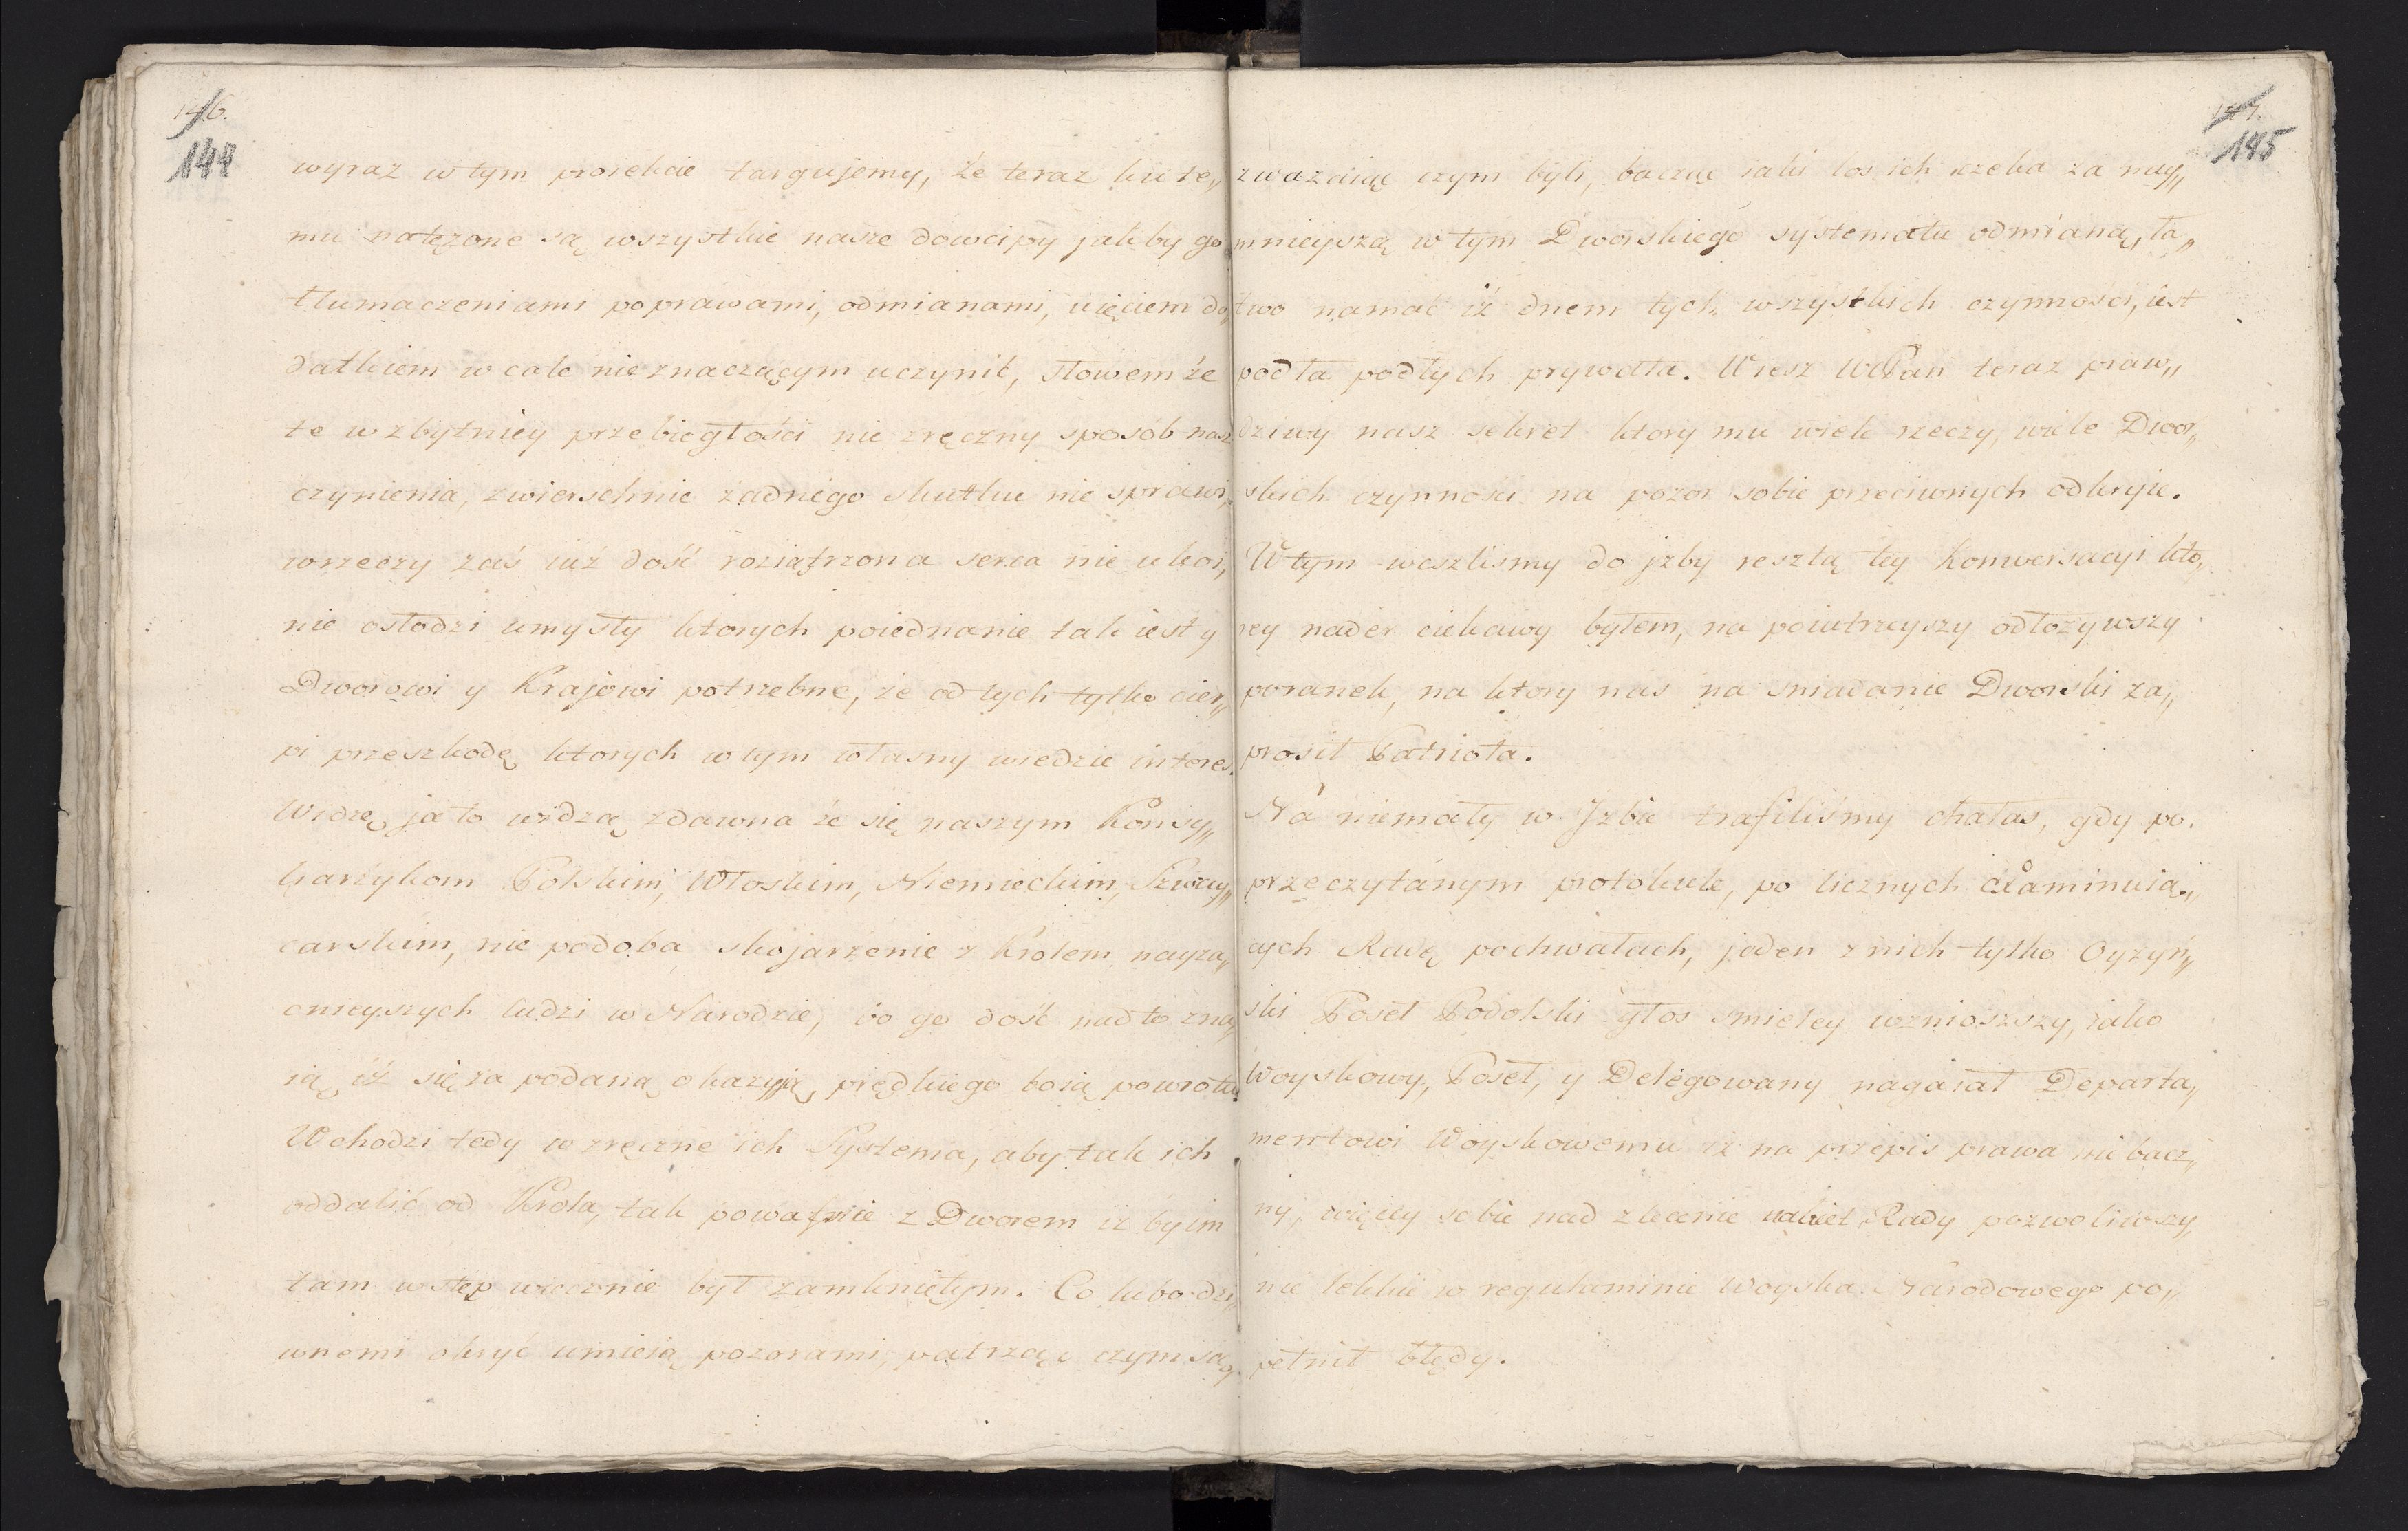 146.
144
wyraz w tym proiekcie targujemy, że teraz ku te„
mu natężone są wszystkie nasze dowcipy jakby go
tłumaczeniami poprawami, odmianami, uięciem do„
datkiem w cale nieznaczącym uczynić, słowem że
te w zbytniey przebiegłości nie zręczny sposob nasz
czynienia, zwierschnie żadnégo skutku nie sprawi,
wrzeczy zaś iuż dość roziątrzona serca nie ukoi,
nie osłodzi umysły ktorych poiednanie tak iest y
Dworowi y Krajowi potrzebne, że od tych tylko cier„
pi przeszkodę ktorych w tym własny wiedzie interes.
Widzę ja to widzą zdawna że się naszym Konsy„
liarzykom Polskim, Włoskim, Niemieckim, Szway„
carskim, nie podoba skojarzenie z Krolem nayza„
cnieyszych ludzi w Narodzie, bo go dość nadto zna„
ią, iż się za podaną okazyją, prędkiego boią powrotu.
Wchodzi tedy w zręczne ich Systema, aby tak ich
oddalić od Krola, tak powaśnie z Dworem iż by im
tam wstęp wiecznie był zamkniętym. Co lubo dzi„
wnemi okryć umieią pozorami, patrząc czym są,
147.
145
zwazaiąc czym byli, bacząc iaki los ich czeka za nay„
mnieyszą w tym Dworskiego systematu odmianą, ła„
two namać iż dnem tych wszystkich czynności, iest
podła podłych prywatta. Wiesz WPan teraz praw„
dziwy nasz sekret ktory mu wiele rzeczy, wiele Dwor„
skich czynności na pozor sobie przeciwnych odkryie.
W tym weszlismy do jzby resztą tey Konwersacyi kto„
rey nader ciekawy byłem, na poiutrzeyszy odłożywszy
poranek, na ktory nas na sniadanie Dworski za„
prosił Patriota.
Na niemały w Jzbie trafiliśmy chałas, gdy po.
przeczytánym protokule, po licznych examinuią„
cych Radę pochwałach, jeden z nich tylko Oyzyń„
ski Poseł Podolski głos smieley wzniosszy, iako
Woyskowy, Poseł, y Delégowany naganiał Departa„
mentowi Woyskowemu iż na przepis prawa nie bacz„
ny, więcey sobie nad zlecenie Rady pozwoliwszy,
nie lekkie w regulaminie Woyska Narodowego po„
pełnił błędy.